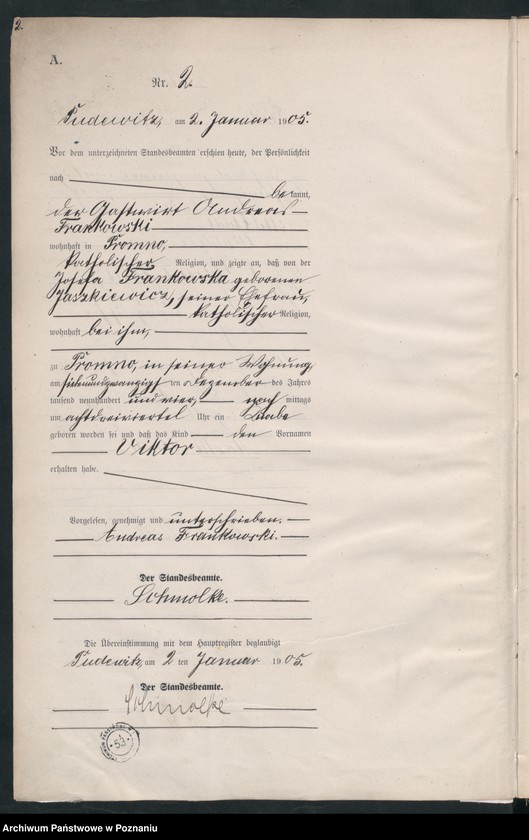 2.
A.
Nr. 2.
Pudewitz, am 2. Januar 1905.
Vor dem unterzeichneten Standesbeamten erschien heute, der Persönlichkeit
nach bekannt,
der Gastwirt Andreas
Frankowski
wohnhaft in Promno,
katholischer Religion, und zeigte an, daß von der
Josefa Frankowska geborenen
Jaszkiewicz, seiner Ehefrau,
katholischer Religion,
wohnhaft bei ihm,
zu Promno, in seiner Wohnung,
am siebenundzwanzigsten Dezember des Jahres
tausend neunhundert und vier, nach mittags
um achtdreiviertel Uhr ein Knabe
geboren worden sei und daß das Kind den Vornamen
Viktor
erhalten habe.
Vorgelesen, genehmigt und unterschrieben.
Andreas Frankowski.
Der Standesbeamte.
Schmolke.
Die Übereinstimmung mit dem Hauptregister beglaubigt
Pudewitz, am 2 ten Januar 1905.
Der Standesbeamte.
Schmolke
53
Archiwum Państwowe w Poznaniu